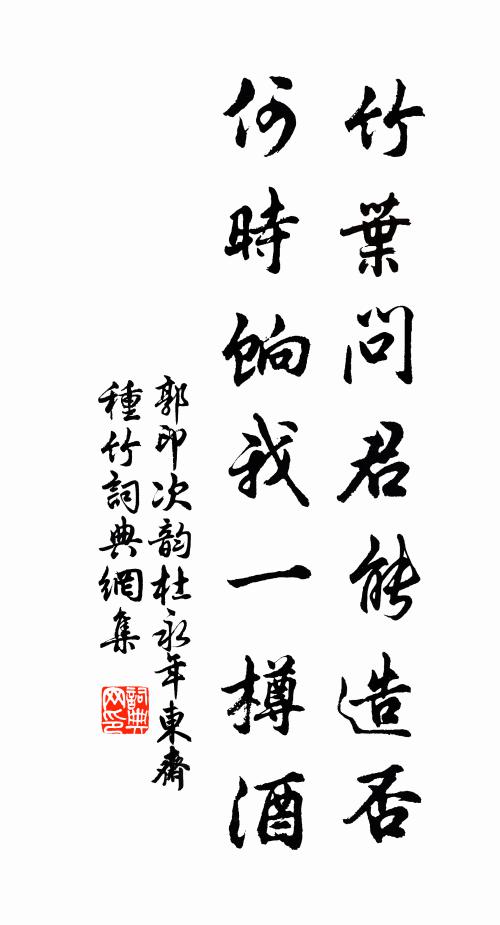 竹葉問君能造否
何時餉我一樽酒
郭印次韵杜永年東齋
種竹詞典網集
詞典
网印